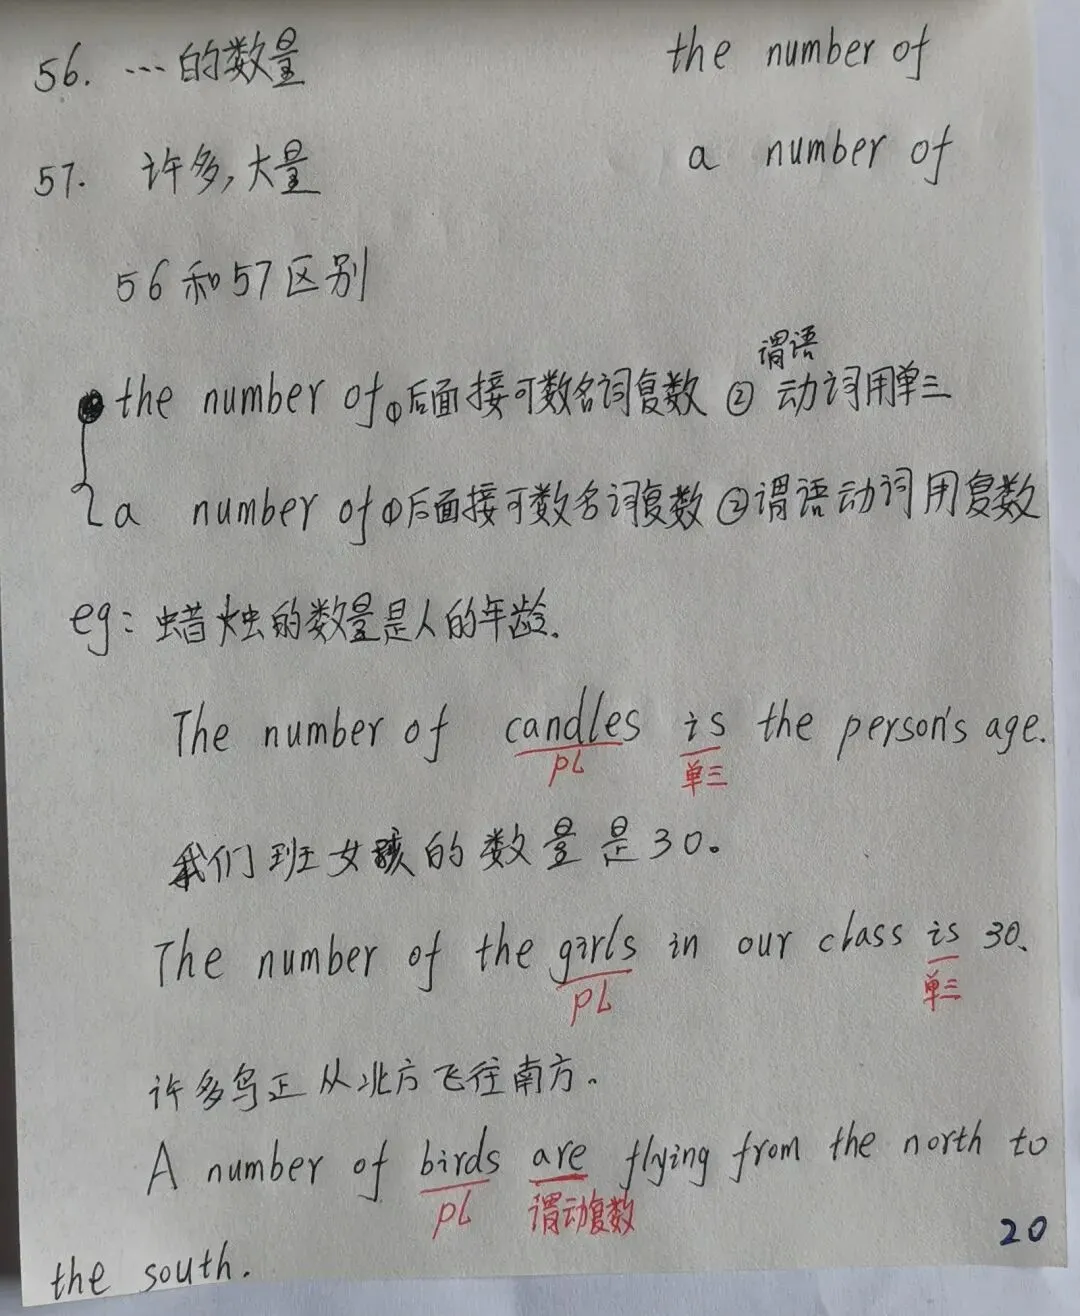 56. …的数量 the number of
57. 许多,大量 a number of
56和57区别
谓语
the number of ①后面接可数名词复数 ② 动词用单三
a number of ①后面接可数名词复数 ②谓语动词用复数
eg: 蜡烛的数量是人的年龄.
The number of candles is the person's age.
pL 单三
我们班女孩的数量是30。
The number of the girls in our class is 30.
pL 单三
许多鸟正从北方飞往南方。
A number of birds are flying from the north to
pL 谓动复数
20
the south.